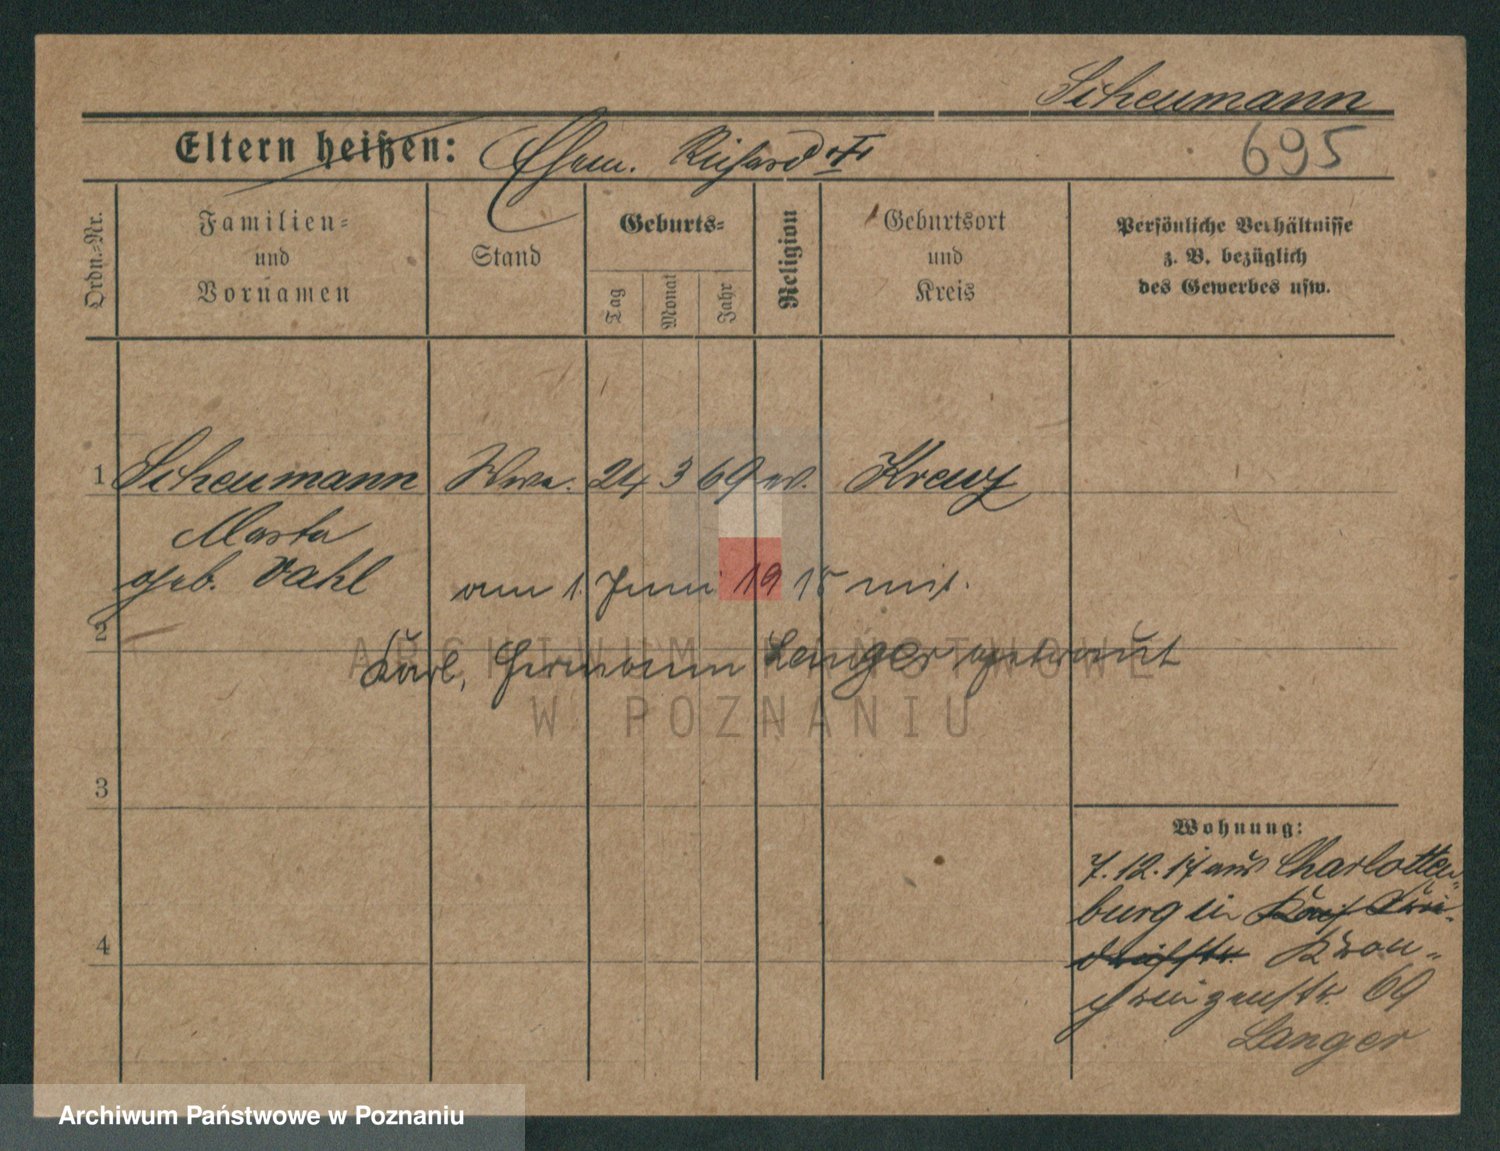 Scheumann
695
Eltern heißen: Ehem. Richard
Ordn.-Nr.
Familien-
und
Vornamen
Stand
Geburts-
Tag
Monat
Jahr
Religion
Geburtsort
und
Kreis
Persönliche Verhältnisse
z. B. bezüglich
des Gewerbes usw.
1 Scheumann Wwe. 24 3 69 ev. Kreuz
Marta
geb. Vahl
am 1. Juni 1915 mit
2
Karl, Hermann Langer getraut
ARCHIWUM PAŃSTWOWE
W POZNANIU
3
Wohnung:
7.12.17 aus Charlotten-
burg in
4
Kron-
prinzenstr. 69
Langer
Archiwum Państwowe w Poznaniu